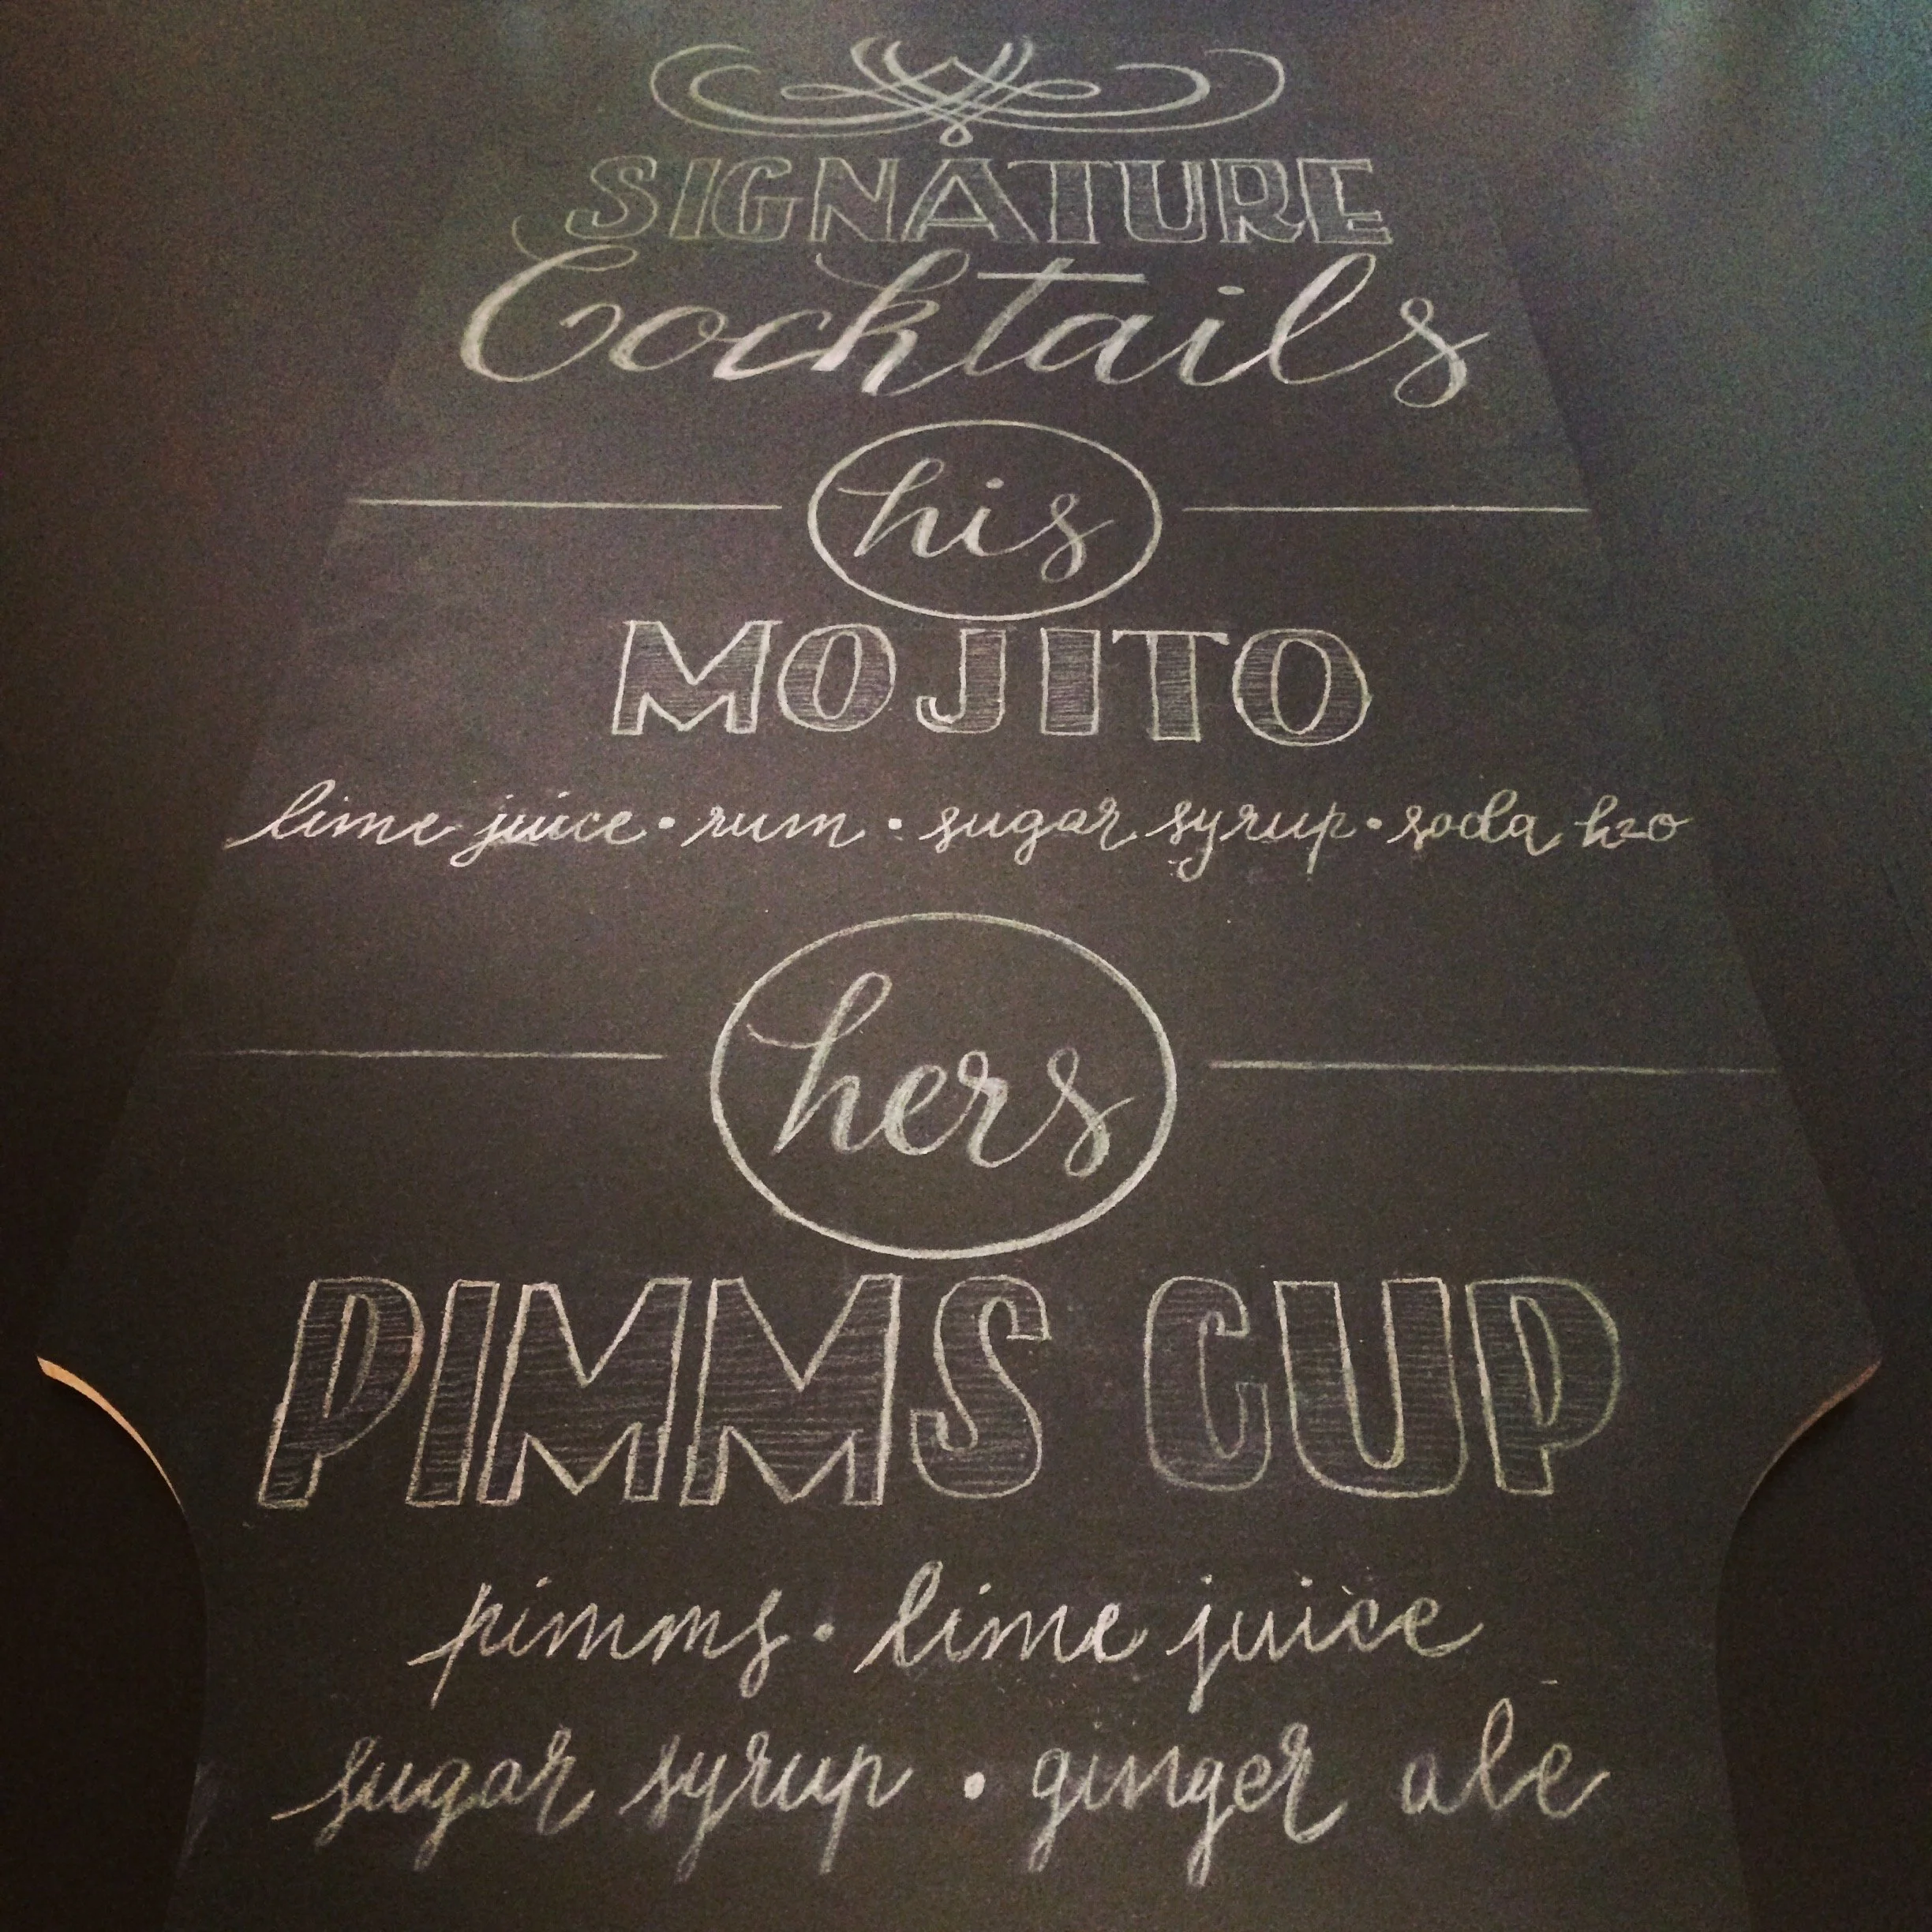 SIGNATURE
Cocktails
his
MOJITO
lime juice • rum • sugar syrup • soda h2o
hers
PIMMS CUP
pimms • lime juice
sugar syrup • ginger ale